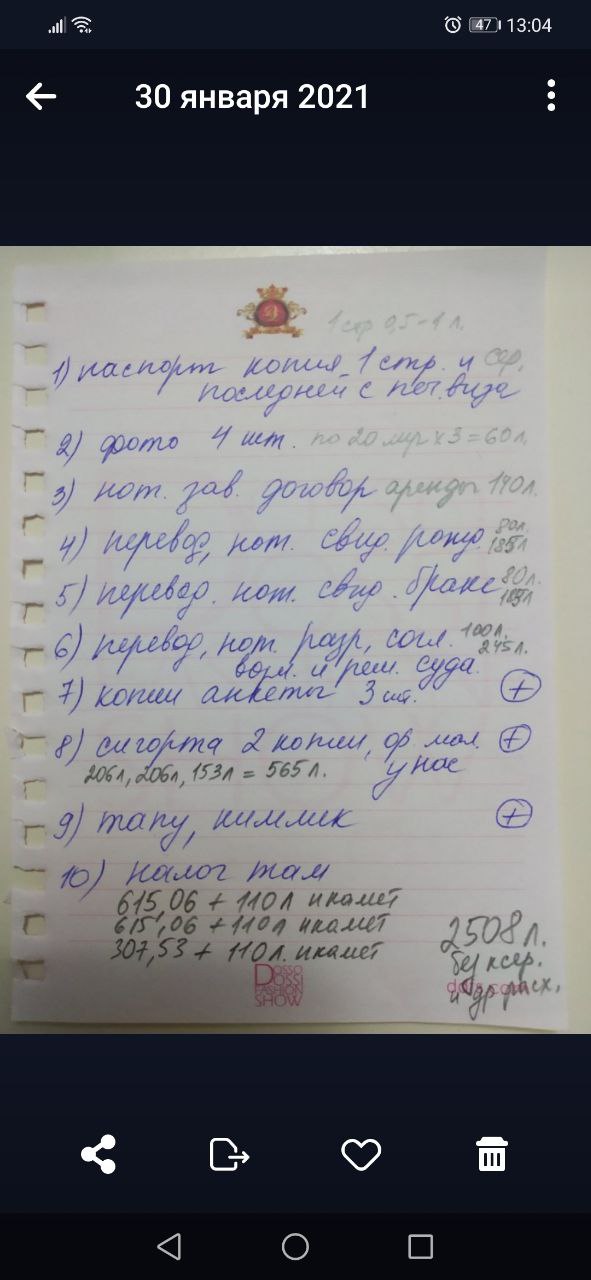 47 13:04
30 января 2021
1 стр 0,5-1 л.
1) паспорт копия 1 стр. и
последней с печ. виза
2) фото 4 шт. по 20 лир х 3 = 60 л.
3) нот. зав. договор аренды 140 л.
4) перевод, нот. свид. рожд. 80л.
185л
5) перевод. нот. свид. браке 80л.
185л
6) перевод, нот. разр, согл. 100л,
245л.
и реш. суда.
7) копии анкеты 3 шт. +
8) сигорта 2 копии, +
206л, 206л, 153л = 565 л. у нас
9) тапу, кимлик +
10) налог там
615,06 + 110 л икамет
615,06 + 110 л икамет
307,53 + 110 л. икамет
2508 л.
без ксер.
и др расх.
DOSSO
DOSSI
FASHION
SHOW